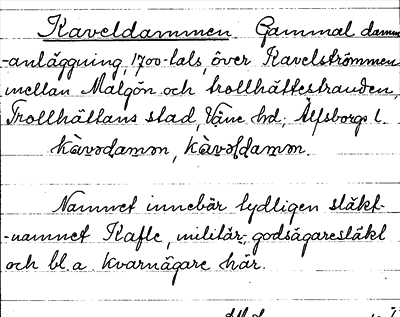 Kaveldammen. Gammal damm-
-anläggning, 1700-tals, över Kavelströmmen
mellan Malgön och trollhättestranden,
Trollhättans stad, Väne hd, Älfsborgs l.
kàvədamən, kàvəldamən.
Namnet innebär tydligen släkt-
-namnet Kafle, militär-, godsägaresläkt
och bl.a. kvarnägare här.